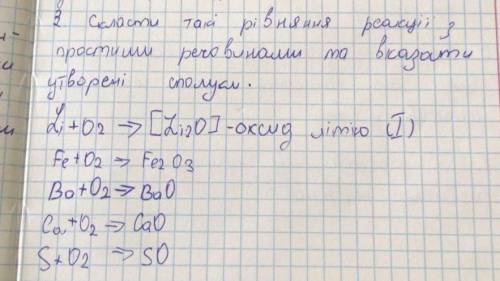 2 Скласти такі рівняння реакції з
простими речовинами та вказати
утворені сполуки.
4Li+O2 → [Li2O]-оксид літію (I)
Fe+O2 → Fe2O3
Ba+O2 → BaO
Ca+O2 → CaO
S+O2 → SO